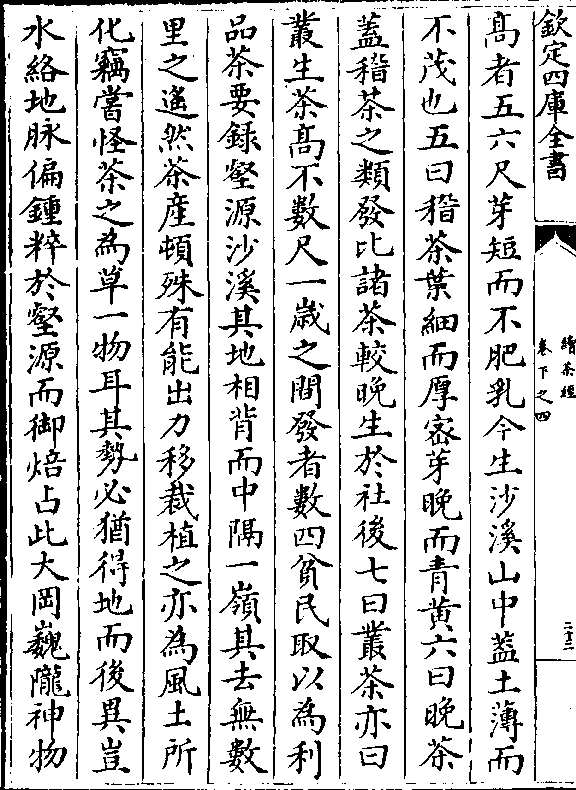 欽定四庫全書
續茶經
卷下之四
二十三
髙者五六尺芽短而不肥乳今生沙溪山中葢土薄而
不茂也五曰稽茶葉細而厚宻芽晚而青黄六曰晚茶
蓋稽茶之類發比諸茶較晚生於社後七曰叢茶亦曰
叢生茶髙不數尺一歳之間發者數四貧民取以為利
品茶要録壑源沙溪其地相背而中隔一嶺其去無數
里之遥然茶産頓殊有能出力移栽植之亦為風土所
化竊嘗怪茶之為草一物耳其勢必猶得地而後異豈
水絡地脉偏鍾粹於壑源而御焙占此大岡巍隴神物